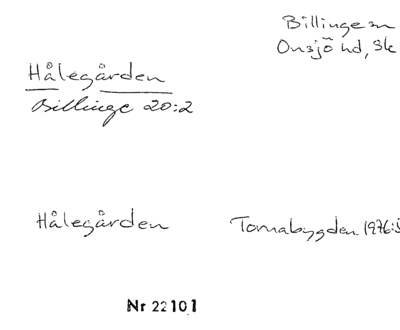 Billinge sn
Onsjö hd, Sk
Hålegården
Billinge 20:2
Hålegården
Tornabygden 1976:5
Nr 22101